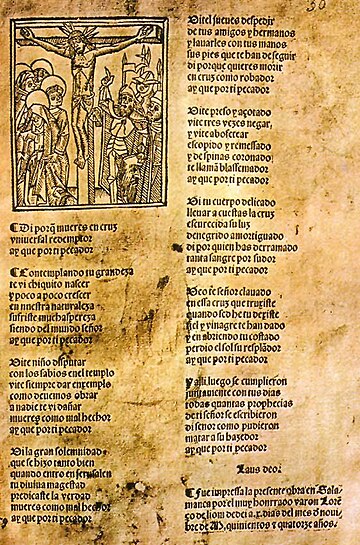 Di porq̃ mueres en cruz
vniuersal redemptor
ay que por ti pecador
Contemplando tu grandeza
te vi chiquito nascer
y poco a poco crescer
en nuestra naturaleza
sufriste mucha aspereza
siendo del mundo señor
ay que por ti pecador
Vite niño disputar
con los sabios en el templo
vite siempre dar enxemplo
como deuemos obrar
a nadie te vi dañar
mueres como mal hechor
ay que por ti pecador
Vi la gran solemnidad
que se hizo tanto bien
quando entro en jerusalen
tu diuina magestad
predicaste la verdad
mueres como mal hechor
ay que por ti pecador
30
Vi tel jueues despedir
de tus amigos y hermanos
y lauarles con tus manos
sus pies que te han de seguir
di porque quieres morir
en cruz como robador
ay que por ti pecador
Vite preso y açotado
vite tres vezes negar
y vite abofetear
escopido y remessado
y despinas coronado
te llamã blassemador
ay que por ti pecador
Vi tu cuerpo delicado
lleuar a cuestas la cruz
escurecida su luz
denegrido amortiguado
di por quien has derramado
tanta sangre por sudor
ay que por ti pecador
Veote señor clauado
en essa cruz que truxiste
quando sed he tu dexiste
hiel y vinagre te han dado
y en abriendo tu costado
perdio el sol su resplãdor
ay que por ti pecador
y assi luego se cumplieron
juntamente con tus dias
todas quantas prophecias
de ti señor se escribieron
di señor como pudieron
matar a su hazedor
ay que por ti pecador
Laus deo
Fue impressa la presente obra en Sala
manca por el muy honrrado varon Lorẽ
ço de liom dedei a .x. dias del mes d̃ noui
bre de M. quinientos y quatorze años.